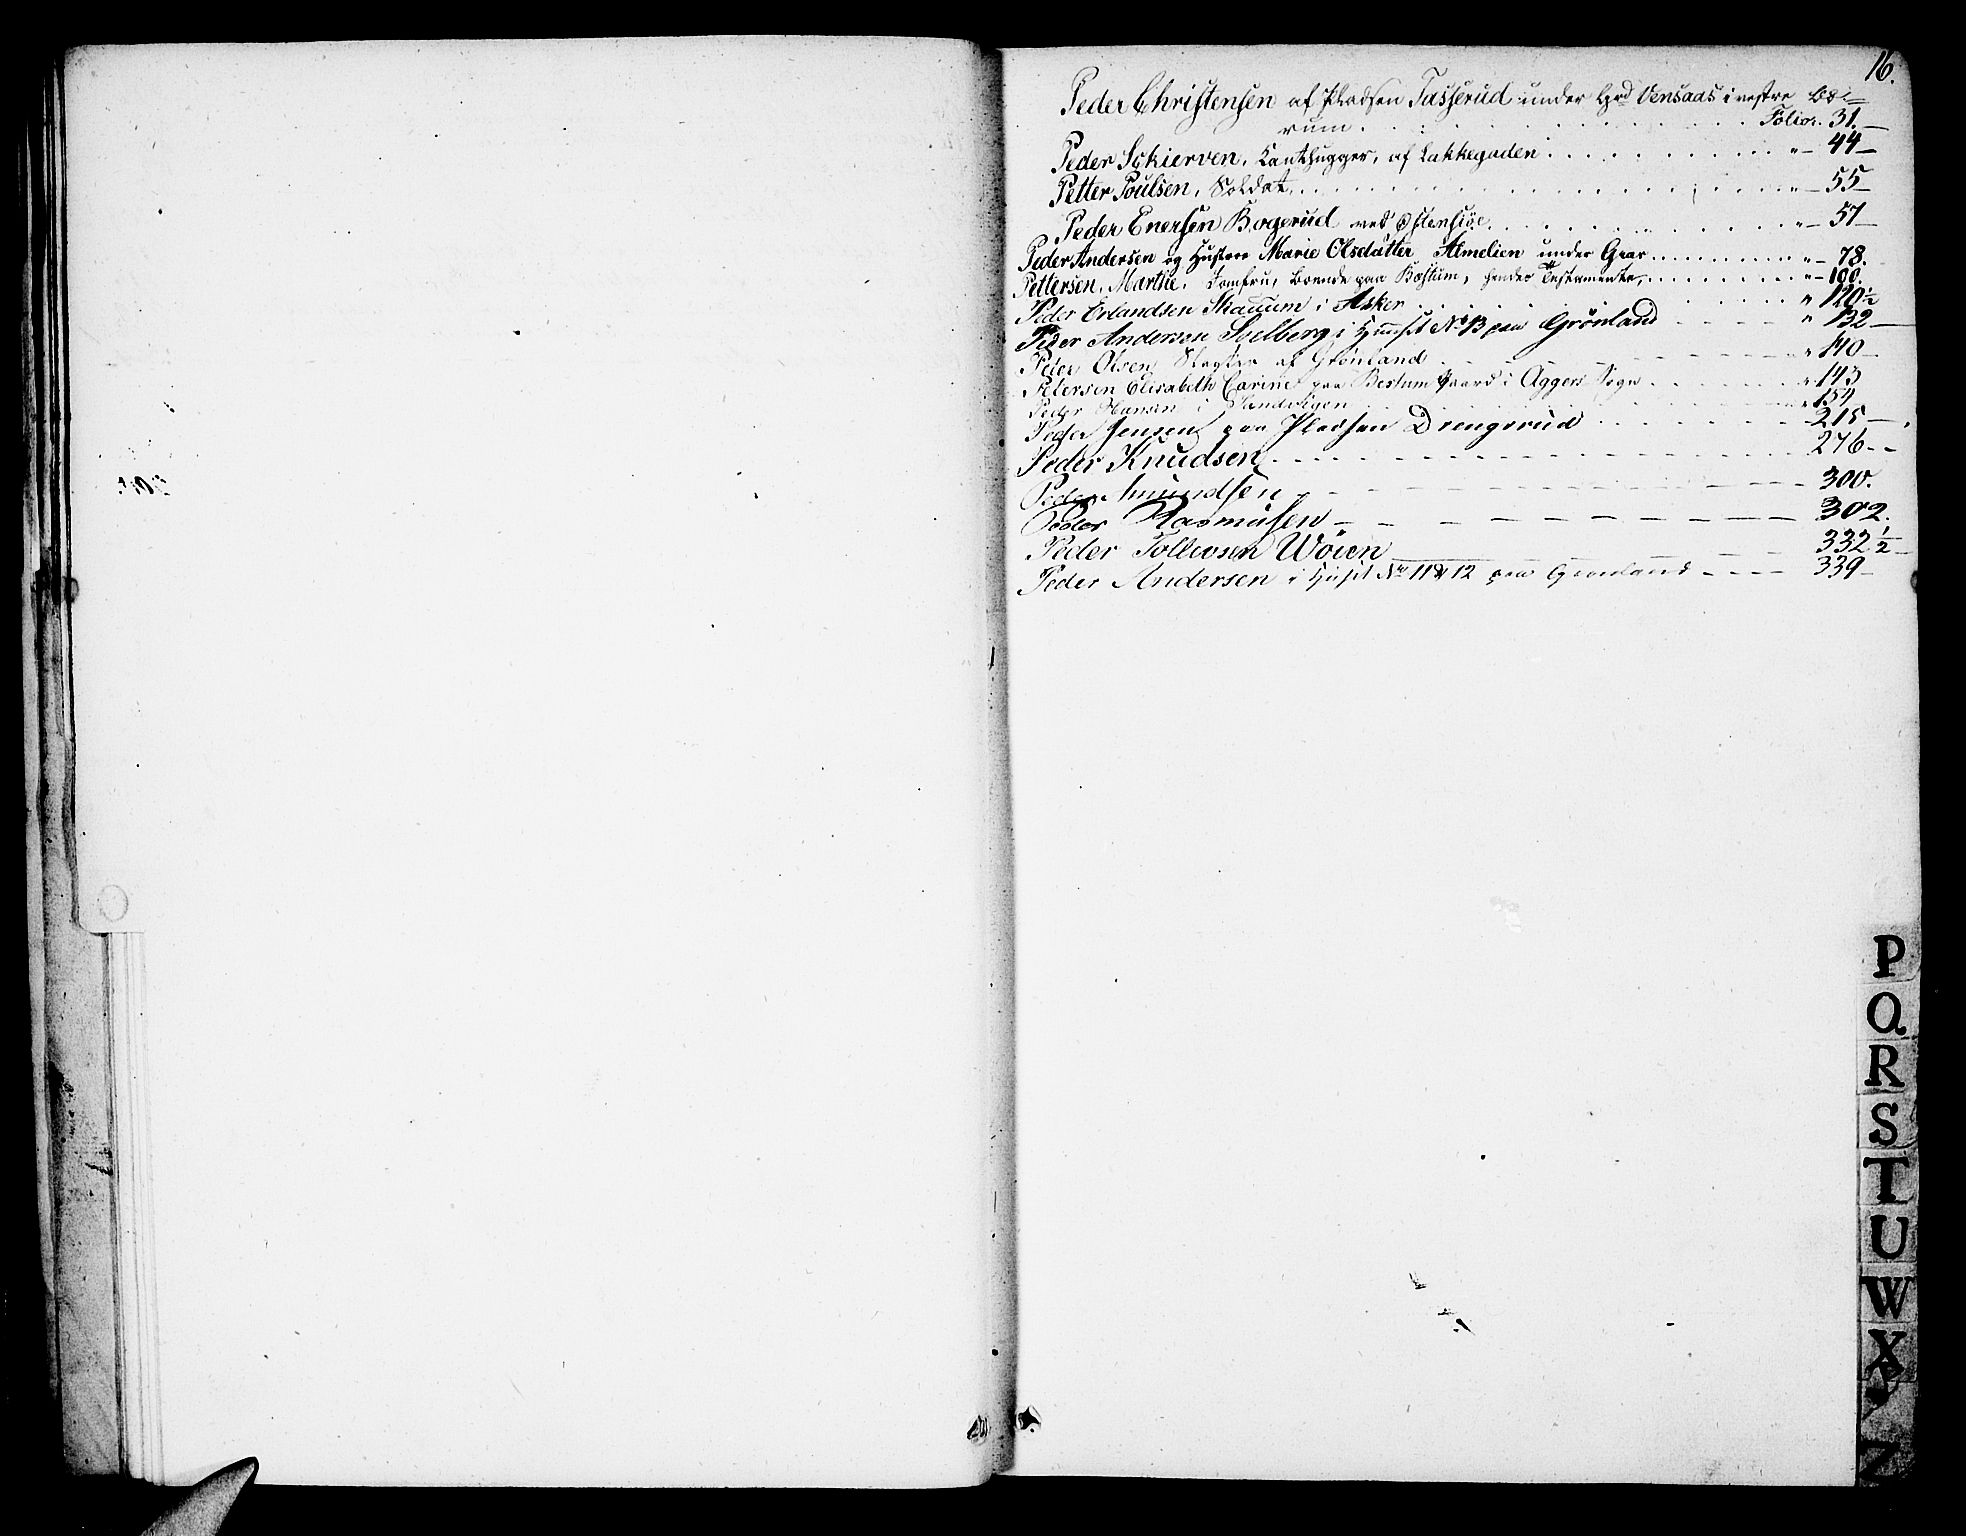 16.
Peder Christensen af Pladsen Tasserud under Grd Vensaas i vestre Bæ=
rum . . . . . . . . . . . . Folior. 31.
Peder Sckierven, Kanthugger, af Lakkegaden . . . . . . . . . . " 44
Petter Poulsen, Soldat . . . . . . . . . . . . . . . . " 55
Peder Enersen Bogerud ved Østensiøe . . . . . . . . . . . " 57
Peder Andersen og Hustroe Marie Olsdatter Almelien under Giær . . . . . . . . . " 78.
Pettersen, Marthe, Jomfru, boende paa Bæstum, hendes Testamente, . . . . . . . . . " 100.
Peder Erlandsen Skauum i Asker . . . . . . . . . . " 120½
Peder Andersen Soelberg i Huuset No 13 paa Grønland . . . . " 132
Peder Olsen, Slagter af Grønland . . . . . . . . " 140
Petersen Elisabeth Carine paa Bestum Gaard i Aggers Sogn . . . . . . . " 143
Peder Hansen i Sandvigen . . . . . . . . " 154
Peder Jensen paa Pladsen Drengsrud . . . . . . . . 215
Peder Knudsen . . . . . . . . . . . . 276
Peder Amundsen - - - - - - - - 300.
Peder Rasmusen - - - - - - - - 302.
Peder Tollevsen Wøien - - - - - - 332½
Peder Andersen i Huset No 11 & 12 paa Grønland - - - - 339
P
Q
R
S
T
U
W
X
Y
Z